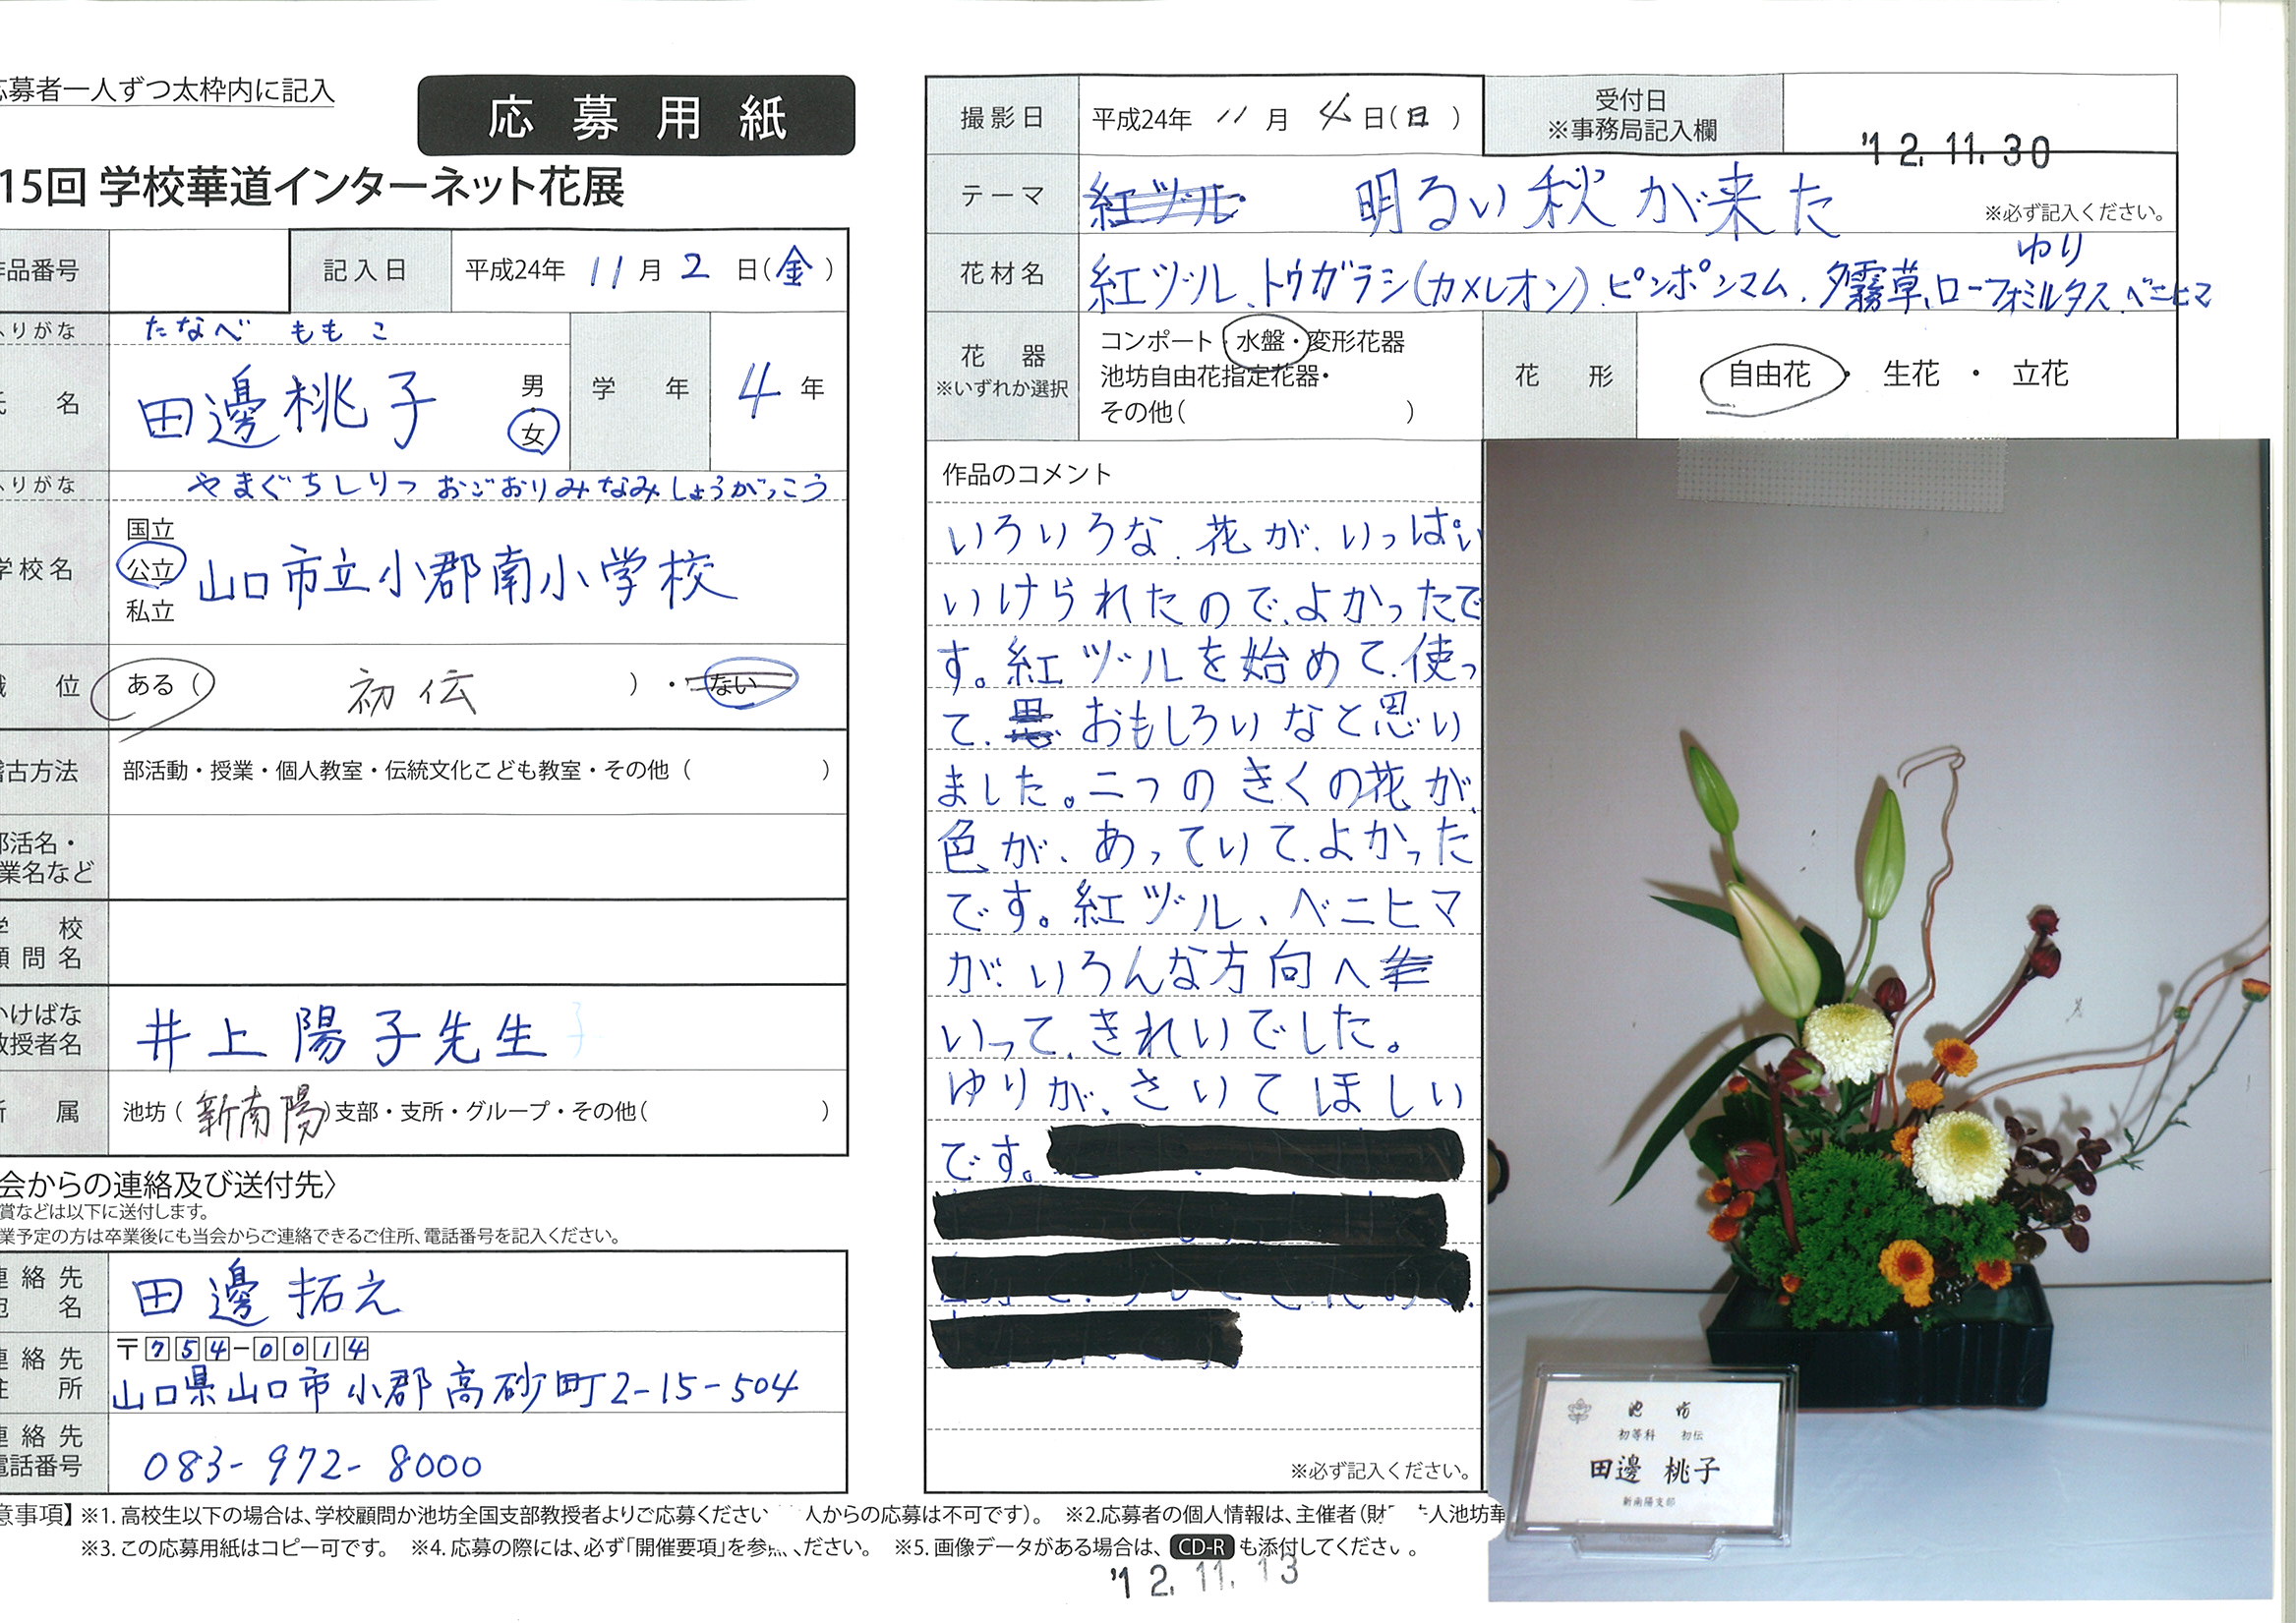 応募者一人ずつ太枠内に記入
応募用紙
15回 学校華道インターネット花展
作品番号
記入日 平成24年 11月 2日(金)
ふりがな たなべ ももこ
氏名 田邊桃子 男・女 学年 4年
ふりがな やまぐちしりつ おごおりみなみしょうがっこう
学校名 国立 公立 私立 山口市立小郡南小学校
職位 ある( 初伝 )・ない
稽古方法 部活動・授業・個人教室・伝統文化こども教室・その他( )
部活名・
授業名など
学校
顧問名
いけばな
教授者名 井上陽子先生
所属 池坊(新南陽)支部・支所・グループ・その他( )
会からの連絡及び送付先〉
賞などは以下に送付します。
業予定の方は卒業後にも当会からご連絡できるご住所、電話番号を記入ください。
連絡先
宛名 田邊拓え
連絡先
住所 〒754-0014
山口県山口市小郡高砂町2-15-504
連絡先
電話番号 083-972-8000
撮影日 平成24年 11月 4日(日)
受付日
※事務局記入欄
'12.11.30
テーマ 紅ヅル 明るい秋が来た ※必ず記入ください。
花材名 紅ヅル、トウガラシ(カメレオン)、ピンポンマム、夕霧草、ローフォミルタス、ベニヒマ
ゆり
花器 ※いずれか選択
コンポート・水盤・変形花器
池坊自由花指定花器・
その他( )
花形 自由花・生花・立花
作品のコメント
いろいろな、花が、いっぱい
いけられたので、よかったで
す。紅ヅルを始めて、使っ
て、おもしろいなと思い
ました。二つのきくの花が、
色が、あっていて、よかった
です。紅ヅル、ベニヒマ
が、いろんな方向へ
いって、きれいでした。
ゆりが、さいてほしい
です。
※必ず記入ください。
池坊
初等科 初伝
田邊 桃子
新南陽支部
意事項】※1. 高校生以下の場合は、学校顧問か池坊全国支部教授者よりご応募ください 人からの応募は不可です)。 ※2.応募者の個人情報は、主催者(財 人池坊華
※3. この応募用紙はコピー可です。 ※4. 応募の際には、必ず「開催要項」を参 ください。 ※5. 画像データがある場合は、CD-Rも添付してください。
'12.11.13